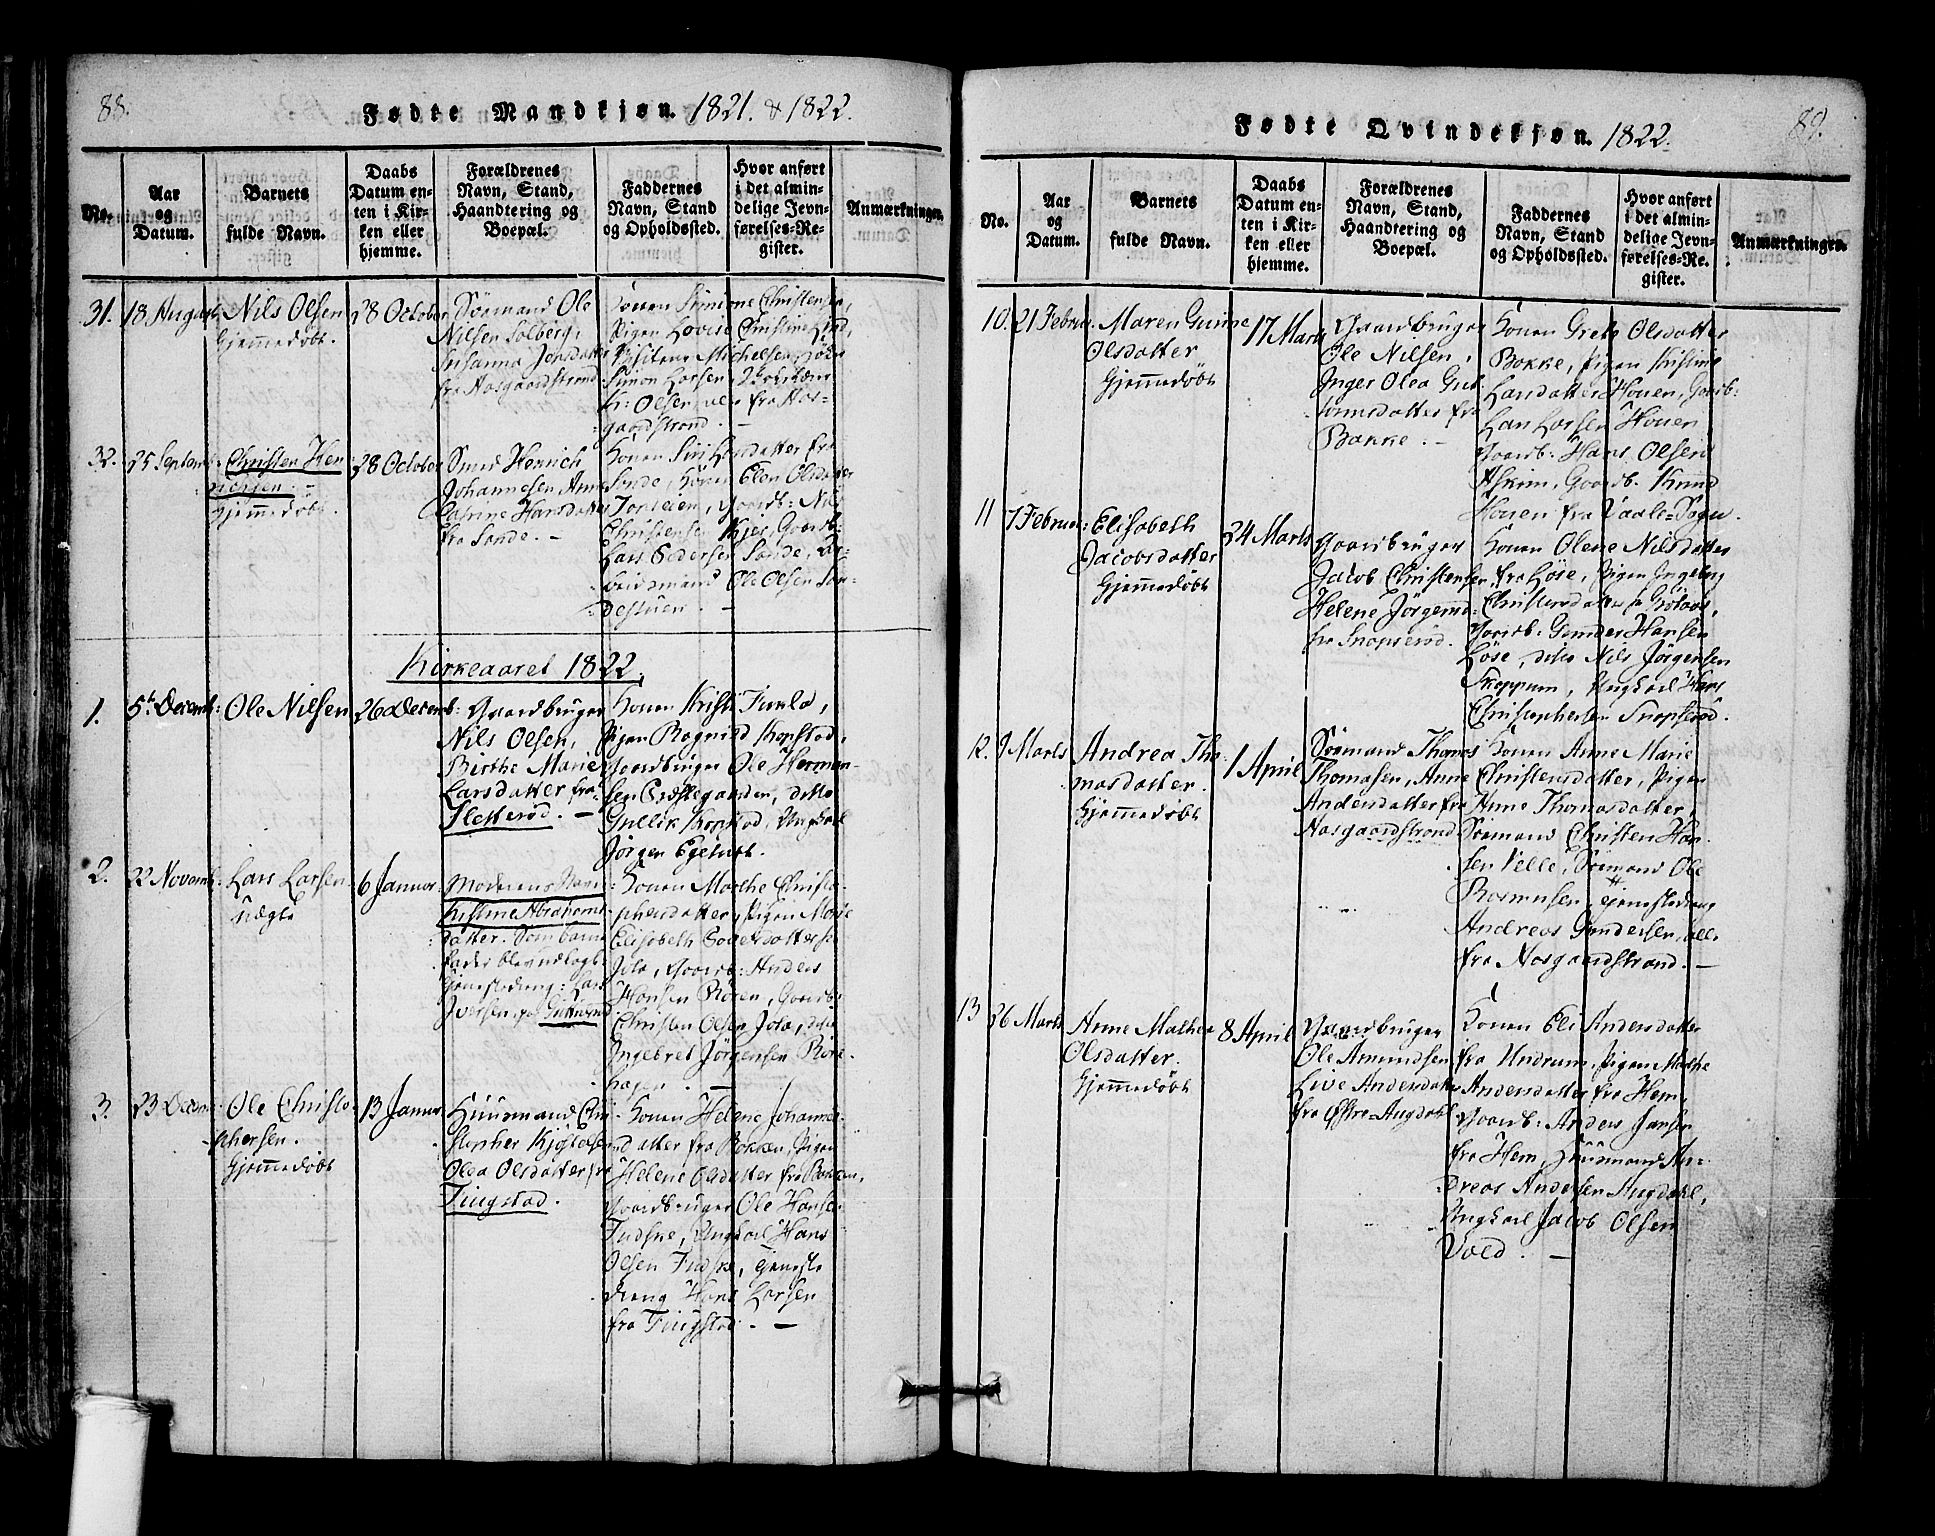 88.
Fødte Mandkjøn. 1821. & 1822.
No.
Aar
og
Datum.
Barnets
fulde Navn.
Daabs
Datum en-
ten i Kir-
ken eller
hjemme.
Forældrenes
Navn, Stand,
Haandtering og
Boepæl.
Faddernes
Navn, Stand
og Opholdssted.
Hvor anført
i det almin-
delige Jevn-
førelses-Re-
gister.
Anmærkninger.
31.
18 August
Nils Olsen
Hjemmedøbt.
28 October
Sömand Ole
Nilsen Solberg,
Susanna Jonsdatter
fra Aasgaardstrand
Konen Simione Christensen,
Pigen Lovise Christine Lind,
Simon Larsen,
K: Olsen, alle fra Aas-
gaardstrand. —
32.
25 Septemb:
Christen Hen
richsen. –
Hjemmedøbt.
28 October
Smed Henrich
Johannesen Anne
Catrine Hansdatter
fra Sande. –
Konen Siri Larsdatter fra
Sande, Konen Elen Olsdatter
Gaardb: Nils
Christensen Kjer, Gaardb:
Lars Pedersen Sande, Ar-
beidsmand Ole Olsen San-
destuen. —
Kirkeaaret 1822.
1.
5te Decemb:
Ole Nilsen
26 Decemb:
Gaardbruger
Nils Olsen,
Birthe Marie
Larsdatter fra
Sletterød. —
Konen Kristi
Pigen Ragnild Kopstad,
Gaardbruger Ole Herman-
sen ditto
Gullik Kopstad, Ungkarl
Jørgen
2.
22 Novemb:
Lars Larsen
Uægte
6 Januar.
Moderens Navn
Kistine Abrahams
datter. Som barne
fader blev udlagt
Tjenestedreng: Lars
Iversen, paa
Konen Marthe Christo-
phersdatter, Pigen Marie
Elisabeth
Gaardb: Anders
Hansen Røren, Gaardb:
Christen Olsen ditto
Ingebret Jörgensen Röre
hagen. —
3.
23 Decemb:
Ole Christo-
phersen.
Hjemmedøbt
13 Januar
Huusmand Chri-
stopher Kjøstelsen
Olea Olsdatter fra
Tingstad.
Konen Helene Johannes-
datter fra Bakken, Pigen
Helene Olsdatter fra Bakken,
Gaardbruger Ole Hansen
Fudske, Ungkarl Hans
Olsen Fudske, Tjeneste
dreng Hans Larsen
fra Tingstad. —
89.
Fødte Qvindekjøn. 1822.
No.
Aar
og
Datum.
Barnets
fulde Navn.
Daabs
Datum en-
ten i Kir-
ken eller
hjemme.
Forældrenes
Navn, Stand,
Haandtering og
Boepæl.
Faddernes
Navn, Stand
og Opholdssted.
Hvor anført
i det almin-
delige Jevn-
førelses-Re-
gister.
Anmærkninger.
10.
21 Februar.
Maren Gurine
Olsdatter
Hjemmedøbt
17 Marts
Gaardbruger
Ole Nilsen,
Inger Olea Gut-
tormsdatter fra
Bakke. –
Konen Grete Olsdatter
Bakke, Pigen Kristine
Larsdatter Houen, Gaardb:
Lars Larsen Houen
Gaardb: Hans Olsen
Askim, Gaardb. Knud
Houen fra Vaale-Sogn.
11
7 Februar:
Elisabeth
Jacobsdatter
Hjemmedøbt
24 Marts
Gaardbruger
Jacob Christensen
Helene Jørgensd:
fra Snopserød.
Konen Olene Nilsdatter
fra Løse, Pigen Ingeborg
Christensdatter
Gaardb. Gunder Hansen
Løse, ditto Nils Jørgensen
Skoppum, Ungkarl Hans
Christophersen Snopserød.
12.
9 Marts
Andrea Tho-
masdatter.
Hjemmedøbt
1 April
Sømand Thomas
Thomasen, Anne
Andersdatter fra
Aasgaardstrand
Konen Anne Marie
Christensdatter, Pigen
Anne Thomasdatter,
Sømand Christen Han-
sen Velle, Sømand Ole
Rasmusen, Tjenestedreng
Andreas Gundersen, alle
fra Aasgaardstrand. —
13
26 Marts
Anne Mathea
Olsdatter.
Hjemmedøbt
8 April
Gaardbruger
Ole Amundsen
Live Andersdatter
fra Østre-Augdahl.
Konen Eli Andersdatter
fra Undrum, Pigen Marthe
Andersdatter fra Hem,
Gaardb: Anders Jansen
fra Hem, Huusmand An-
dreas Andersen Augdahl,
Ungkarl Jacob Olsen
Vold. —